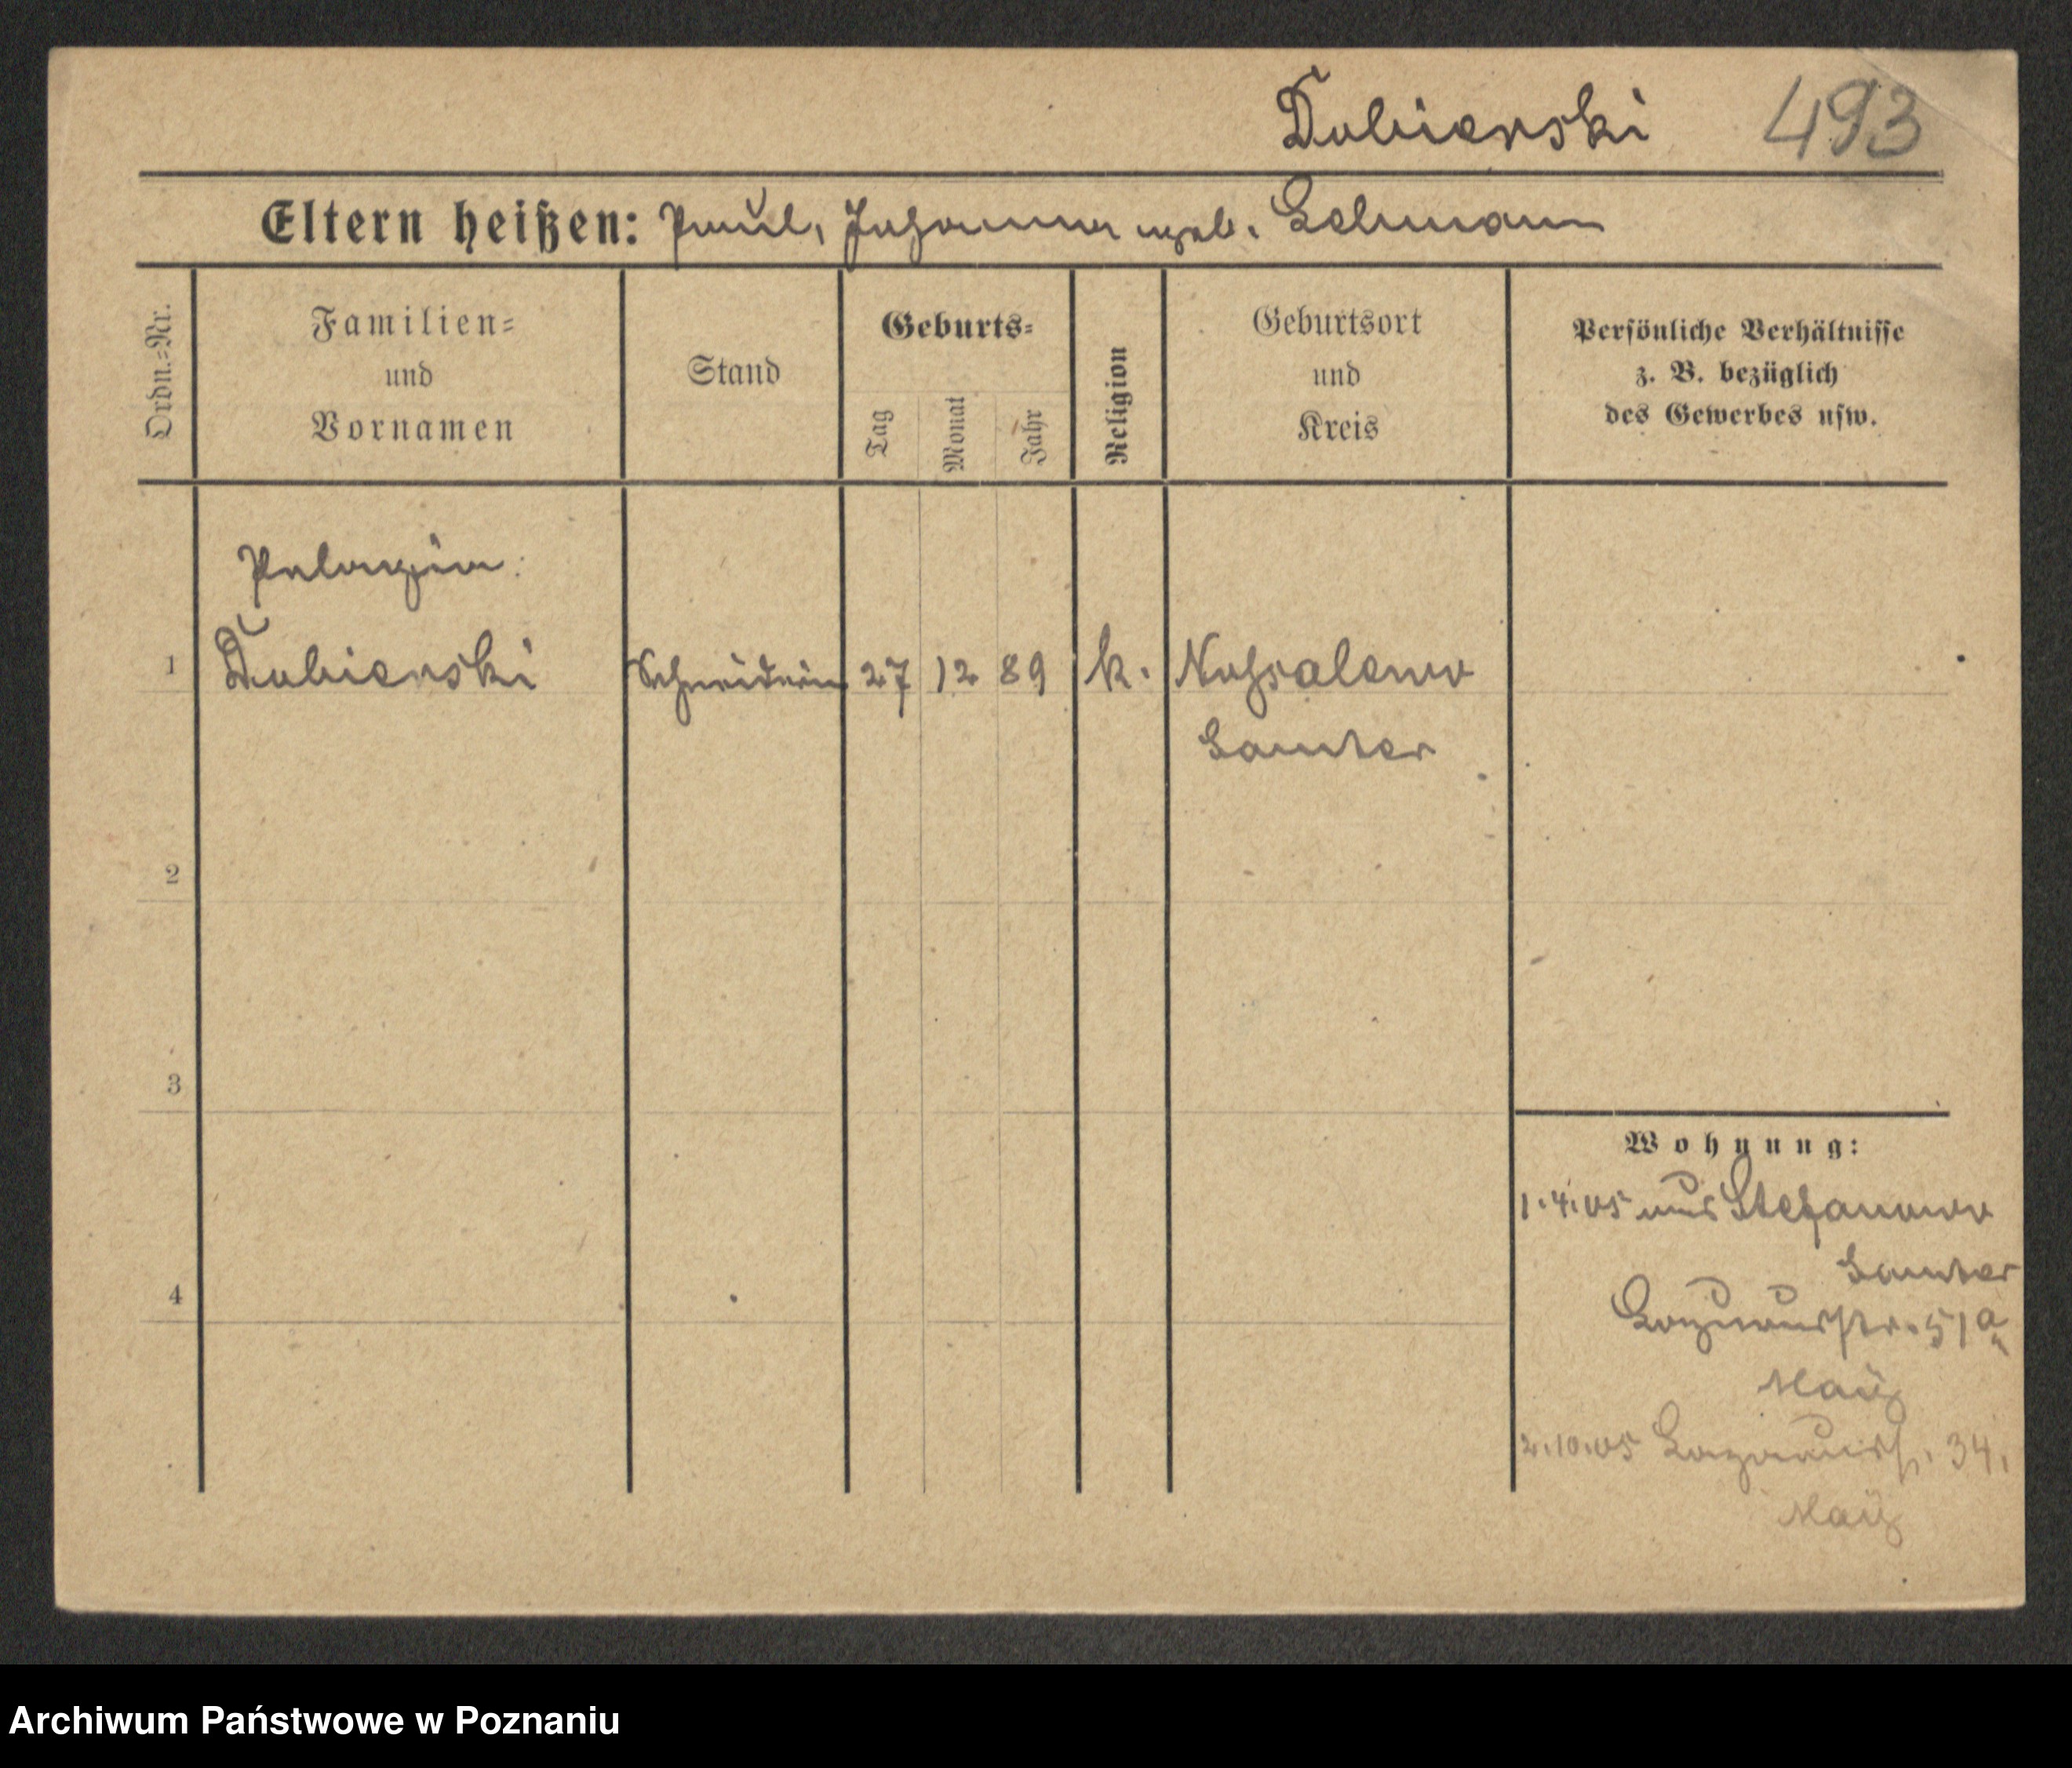 Dubierski 493
Eltern heißen: Paul, Johanna geb. Lehmann
Ordn.-Nr.
Familien-
und
Vornamen
Stand
Geburts-
Tag
Monat
Jahr
Religion
Geburtsort
und
Kreis
Persönliche Verhältnisse
z. B. bezüglich
des Gewerbes usw.
Pelagia
1 Dubierski Schneiderin 27 12 89 k.
Samter
2
3
4
Wohnung:
1.4.05 aus Stefanowo
Samter
51a
2.10.05 34.
Archiwum Państwowe w Poznaniu